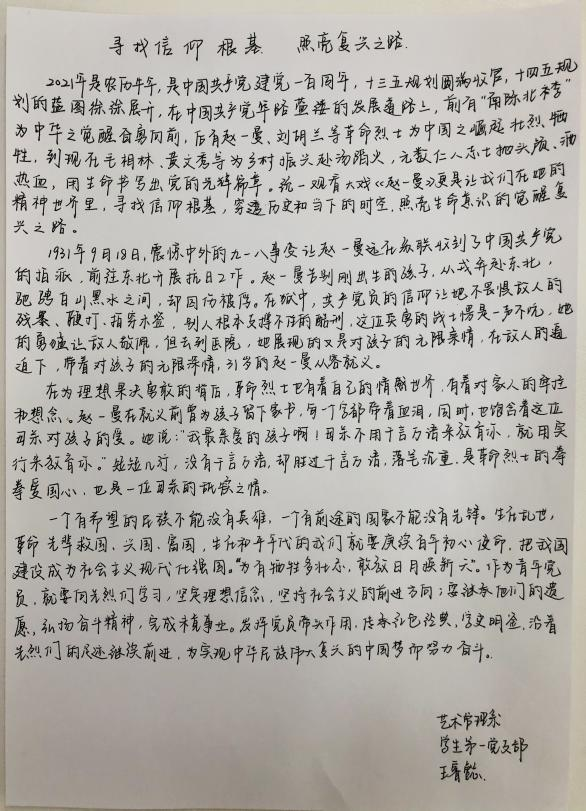 寻找信仰根基 照亮复兴之路.
2021年是农历牛年,是中国共产党建党一百周年,十三五规划圆满收官,十四五规
划的蓝图徐徐展开,在中国共产党筚路蓝缕的发展道路上,前有“南陈北李”
为中华之觉醒奋勇向前,后有赵一曼、刘胡兰等革命烈士为中国之崛起壮烈牺
牲,到现在毛相林、黄文秀等为乡村振兴赴汤蹈火,无数仁人志士抛头颅、洒
热血,用生命书写出党的光辉篇章。说一观看大戏《赵一曼》更是让我们在她的
精神世界里,寻找信仰根基,穿透历史和当下的时空,照亮生命意识的觉醒复
兴之路。
1931年9月18日,震惊中外的九一八事变让赵一曼远在苏联收到了中国共产党
的指派,前往东北开展抗日工作。赵一曼告别刚出生的孩子,从戎奔赴东北,
驰骋白山黑水之间,却因伤被俘。在狱中,共产党员的信仰让她不畏惧敌人的
残暴、鞭打、指穿木签,别人根本支撑不住的酷刑,这位英勇的战士愣是一声不吭,她
的勇猛让敌人敬佩,但去到医院,她展现的又是对孩子的无限亲情,在敌人的逼
迫下,带着对孩子的无限深情,31岁的赵一曼从容就义。
在为理想果决勇敢的背后,革命烈士也有着自己的情感世界,有着对家人的牵挂
和想念。赵一曼在就义前曾为孩子留下家书,每一个字都带着血泪,同时,也饱含着这位
母亲对孩子的爱。她说:“我最亲爱的孩子啊!母亲不用千言万语来教育你,就用实
行来教育你。”短短几行,没有千言万语,却胜过千言万语,落笔沉重,是革命烈士的拳
拳爱国心,也是一位母亲的挚爱之情。
一个有希望的民族不能没有英雄,一个有前途的国家不能没有先锋。生在乱世,
革命先辈救国、兴国、富国,生在和平年代的我们就要赓续百年初心使命,把我国
建设成为社会主义现代化强国。“为有牺牲多壮志,敢教日月换新天”。作为青年党
员,就要向先烈们学习,坚定理想信念,坚持社会主义的前进方向;要继承他们的遗
愿,弘扬奋斗精神,完成未竟事业。发挥党员带头作用,传承红色经典,学史明鉴,沿着
先烈们的足迹继续前进,为实现中华民族伟大复兴的中国梦而努力奋斗。
艺术管理系
学生第一党支部